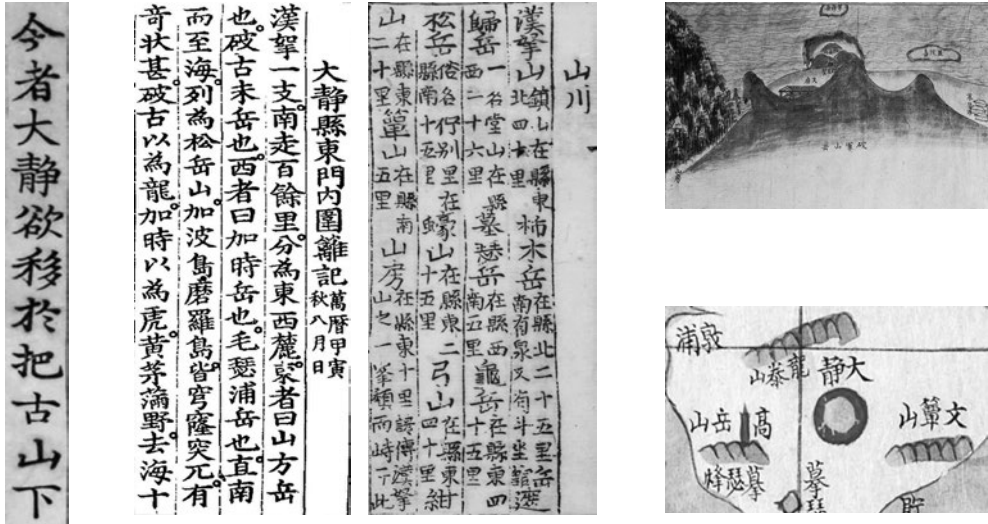 今者大静欲移於把古山下
大静縣東門內圍籬記 萬曆甲寅
秋八月日
漢拏一支南走百餘里分為東西麓東者曰山方岳
也破古未岳也西者曰加時岳也毛瑟浦岳也直南
而至海列為松岳山加波島磨羅島皆穹窿突兀有
奇状甚破古以為龍加時以為虎黃茅滿野去海十
山川
漢拏山 鎮山在縣東
北四十里 柿木岳 在縣北二十五里岳
南有泉又有斗坐
歸岳 一名堂山在縣
西二十六里 墓瑟岳 在縣西
南五里 龜岳 在縣東四
十五里
松岳 俗名別里在
縣南十五里 蠔山 在縣東二
十五里 弓山 在縣東甘
四十里
山 在縣東
二十里 簞山 在縣南
五里 山房 在縣東十里諺傳漢拏
山之一峯顛而峙于此
敦浦
龍泰山
大静
高岳山
文簞山
摹瑟烽
摹瑟
貯